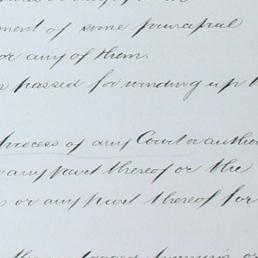 ment of some principal
or any of them.
passed for winding up
Process of any Court or autho
any part thereof or the
or any part thereof for
the